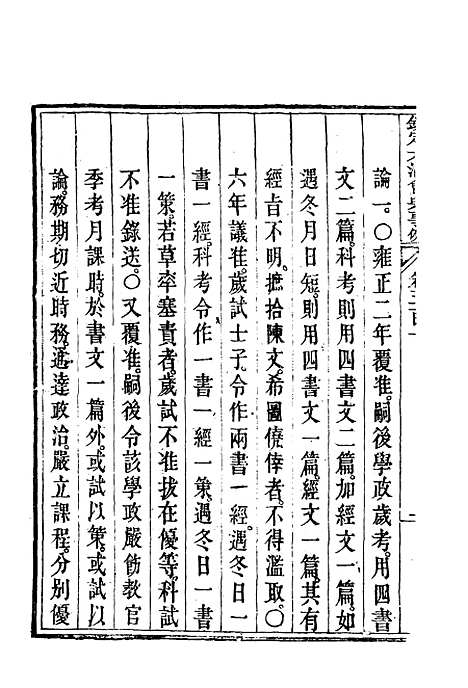 欽定大清會典事例　卷三百　　二
論一。○雍正二年覆准。嗣後學政歲考。用四書
文二篇。科考則用四書文二篇。加經文一篇。如
遇冬月日短。則用四書文一篇。經文一篇。其有
經㫖不明。摭拾陳文。希圖僥倖者。不得濫取。○
六年議准。歲試士子。令作兩書一經。遇冬日一
書一經。科考令作一書一經一策。遇冬日一書
一策。若草率塞責者。歲試不准拔在優等。科試
不准錄送。○又覆准。嗣後令該學政嚴飭敎官
季考月課時。於書文一篇外。或試以策。或試以
論。務期切近時務。通達政治。嚴立課程。分別優